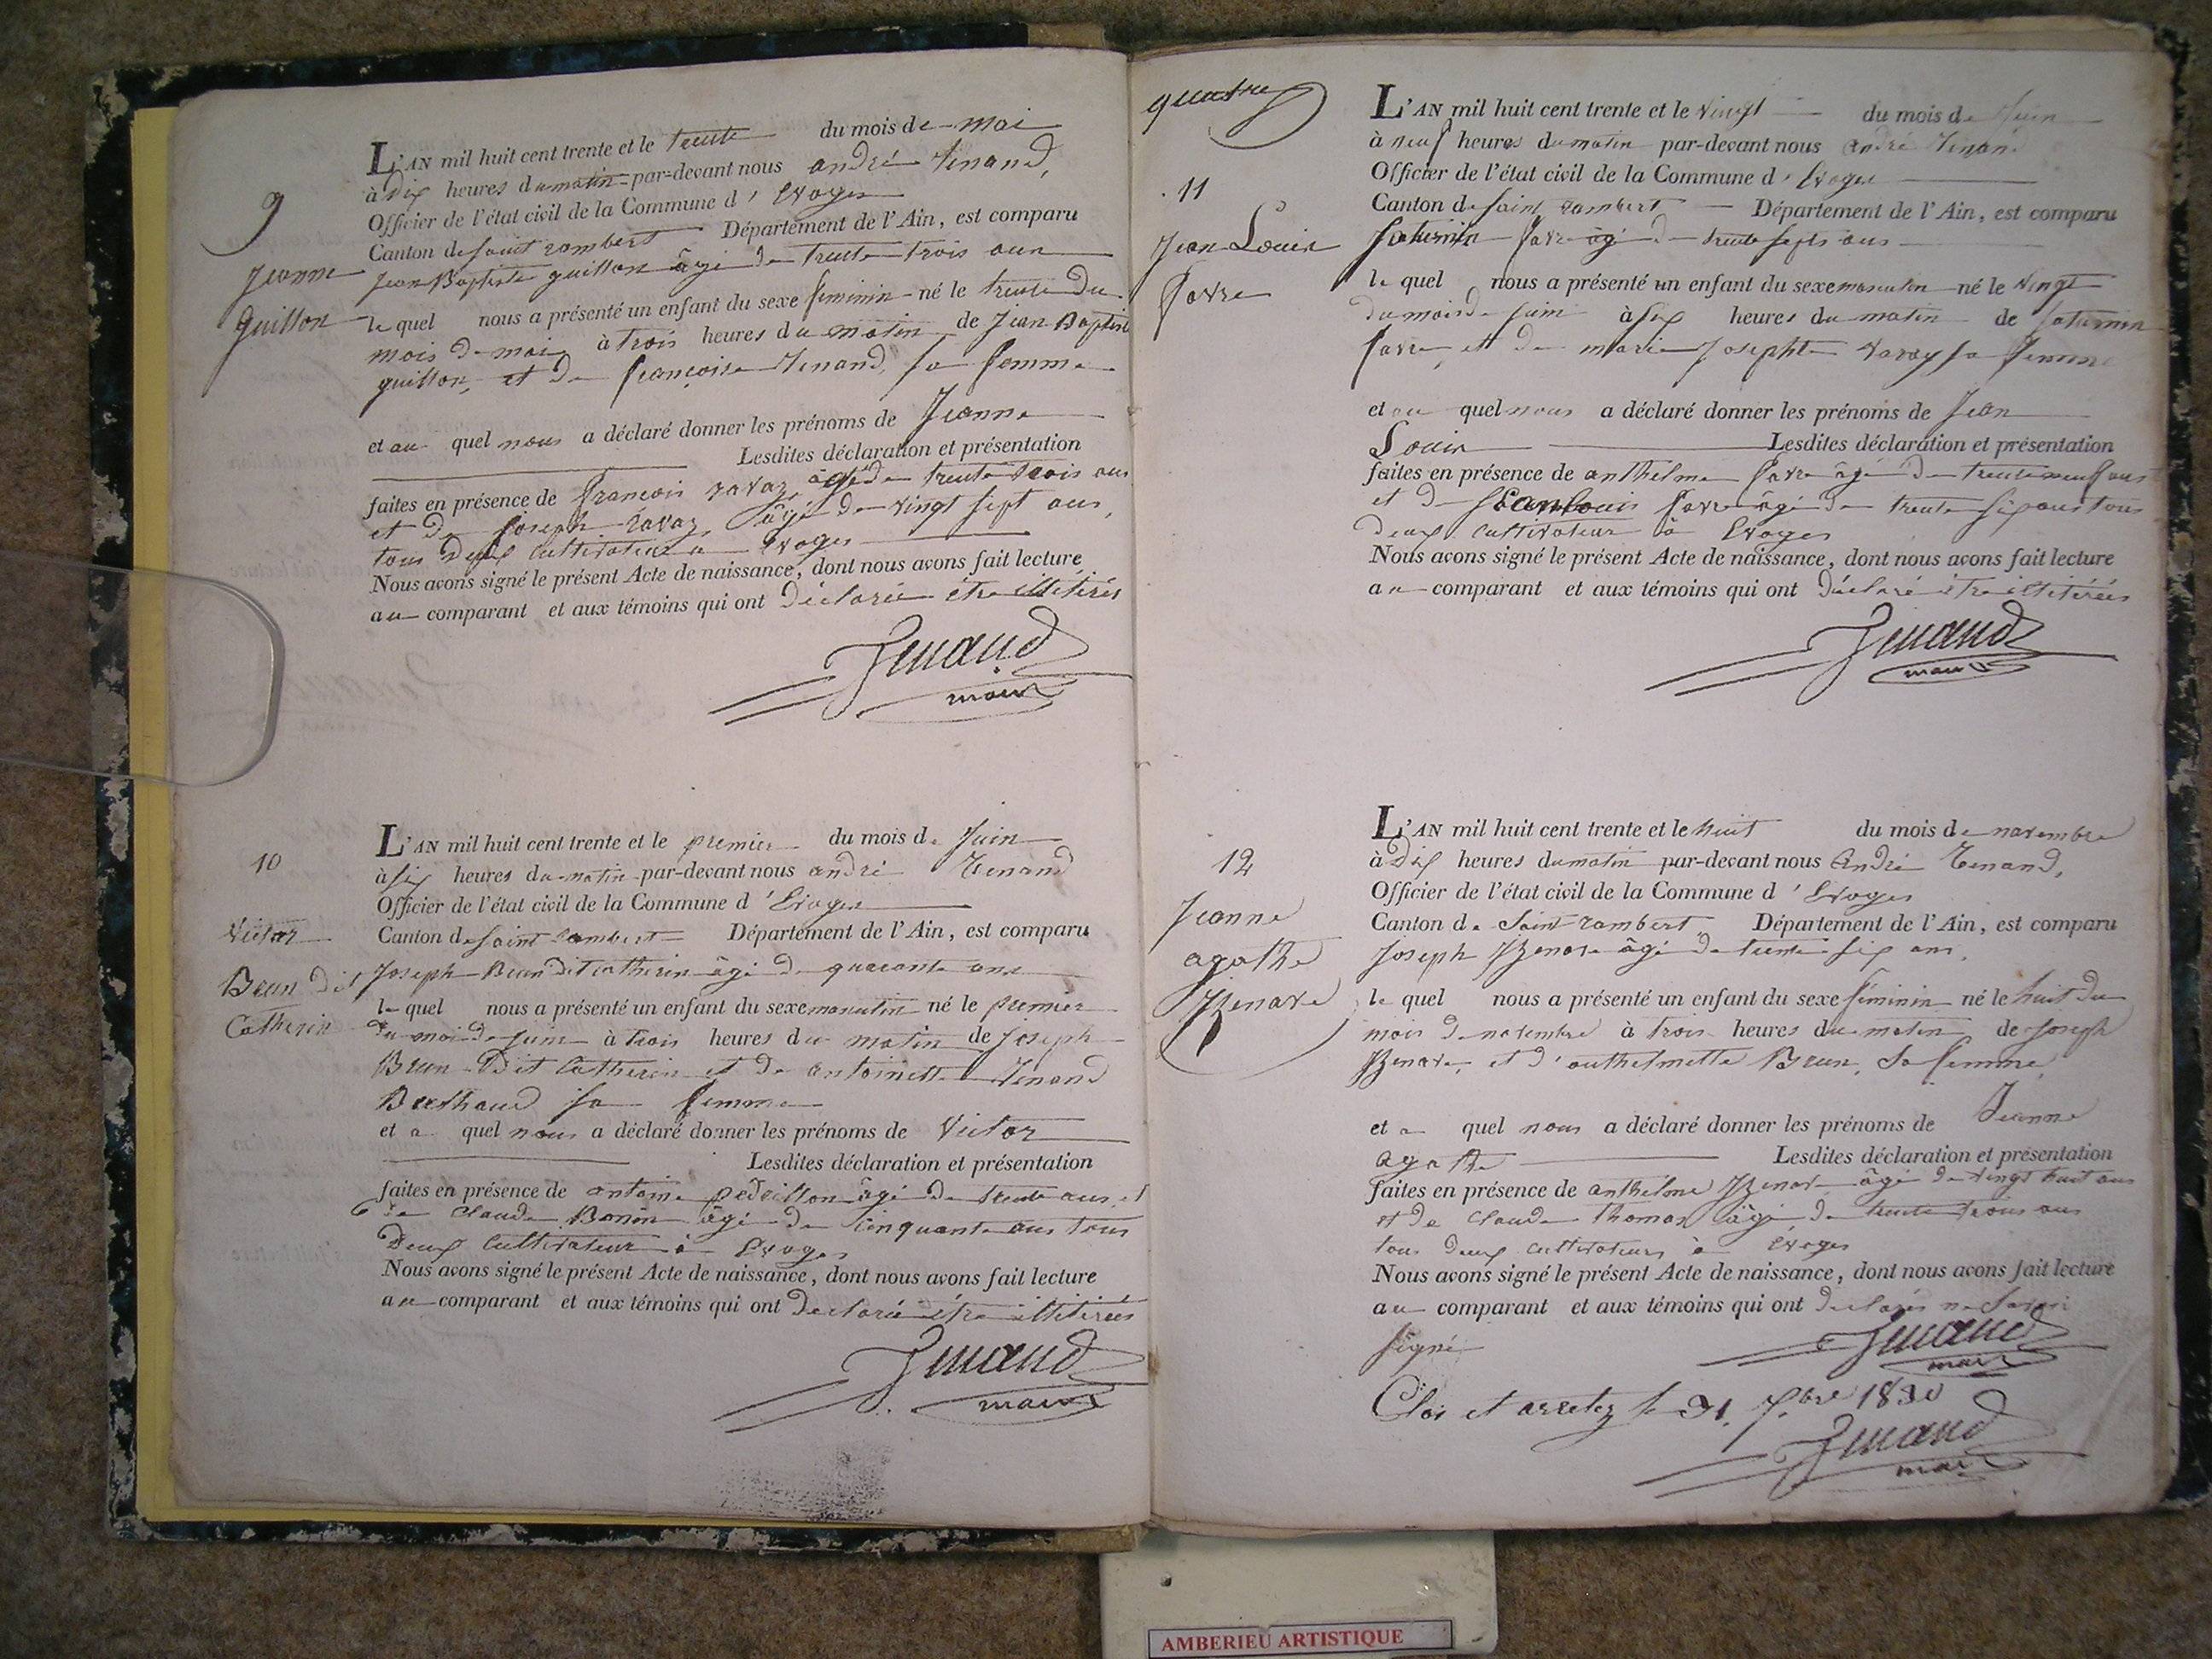 9
Jeanne
Guillon
L'AN mil huit cent trente et le trente du mois de mai
à dix heures du matin par-devant nous andré tenand,
Officier de l'état civil de la Commune d' Evoges
Canton de saint rambert Département de l'Ain, est comparu
Jean Baptiste guillon âgé de trente trois ans
le quel nous a présenté un enfant du sexe feminin né le trente du
mois de mai à trois heures du matin de Jean Baptiste
guillon, et de françoise tenand, sa femme
et au quel nous a déclaré donner les prénoms de Jeanne
Lesdites déclaration et présentation
faites en présence de françois ravaz âgé de trente trois ans
et de joseph ravaz, âgé de vingt sept ans,
tous deux cultivateur a Evoges
Nous avons signé le présent Acte de naissance, dont nous avons fait lecture
au comparant et aux témoins qui ont déclaréé être illitirés
Tenand
maire
10
Victor
Brun dit
Catherin
L'AN mil huit cent trente et le premier du mois de Juin
à six heures du matin par-devant nous andré Tenand
Officier de l'état civil de la Commune d' Evoges
Canton de saint rambert Département de l'Ain, est comparu
Joseph Brun dit catherin âgé de quarante ans
le quel nous a présenté un enfant du sexe masculin né le premier
du moi de juin à trois heures du matin de Joseph
Brun Dit Catherin et de antoinette Tenand
Berthaud sa femme
et a quel nous a déclaré donner les prénoms de Victor
Lesdites déclaration et présentation
faites en présence de antoine âgé de trente ans, et
de Claude Bonin âgé de cinquante ans tous
Deux Cultivateur à Evoges
Nous avons signé le présent Acte de naissance, dont nous avons fait lecture
au comparant et aux témoins qui ont declaréé être illitirées
Tenand
maire
quatre
11
Jean Louis
favre
L'AN mil huit cent trente et le vingt du mois de Juin
à neuf heures du matin par-devant nous andré Tenand
Officier de l'état civil de la Commune d' Evoges
Canton de saint rambert Département de l'Ain, est comparu
saturnin favre âgé de trente septs ans
le quel nous a présenté un enfant du sexe masculin né le vingt
du mois de juin à six heures du matin de saturnin
favre, et de marie Josephte varay sa femme
et au quel nous a déclaré donner les prénoms de Jean
Louis Lesdites déclaration et présentation
faites en présence de anthelme favre âgé de trente neuf ans
et de Jean Louis favre âgé de trente six ans tous
deux cultivateur à Evoges
Nous avons signé le présent Acte de naissance, dont nous avons fait lecture
au comparant et aux témoins qui ont déclaré être illitérées
Tenand
maire
12
Jeanne
agathe
L'AN mil huit cent trente et le huit du mois de novembre
à dix heures du matin par-devant nous André Tenand,
Officier de l'état civil de la Commune d' Evoges
Canton de Saint rambert Département de l'Ain, est comparu
Joseph âgé de trente six ans,
le quel nous a présenté un enfant du sexe féminin né le huit du
mois de novembre à trois heures du matin de Joseph
et d'anthelmette Brun, Sa femme
et a quel nous a déclaré donner les prénoms de Jeanne
agathe Lesdites déclaration et présentation
faites en présence de anthelme âgé de vingt huit ans
et de Claude thomas âgé de trente trois ans
tous deux cultivateurs à Evoges
Nous avons signé le présent Acte de naissance, dont nous avons fait lecture
au comparant et aux témoins qui ont declarés ne savoir
signé
Tenand
maire
Clos et arretez le 31 1830
Tenand
maire
AMBERIEU ARTISTIQUE